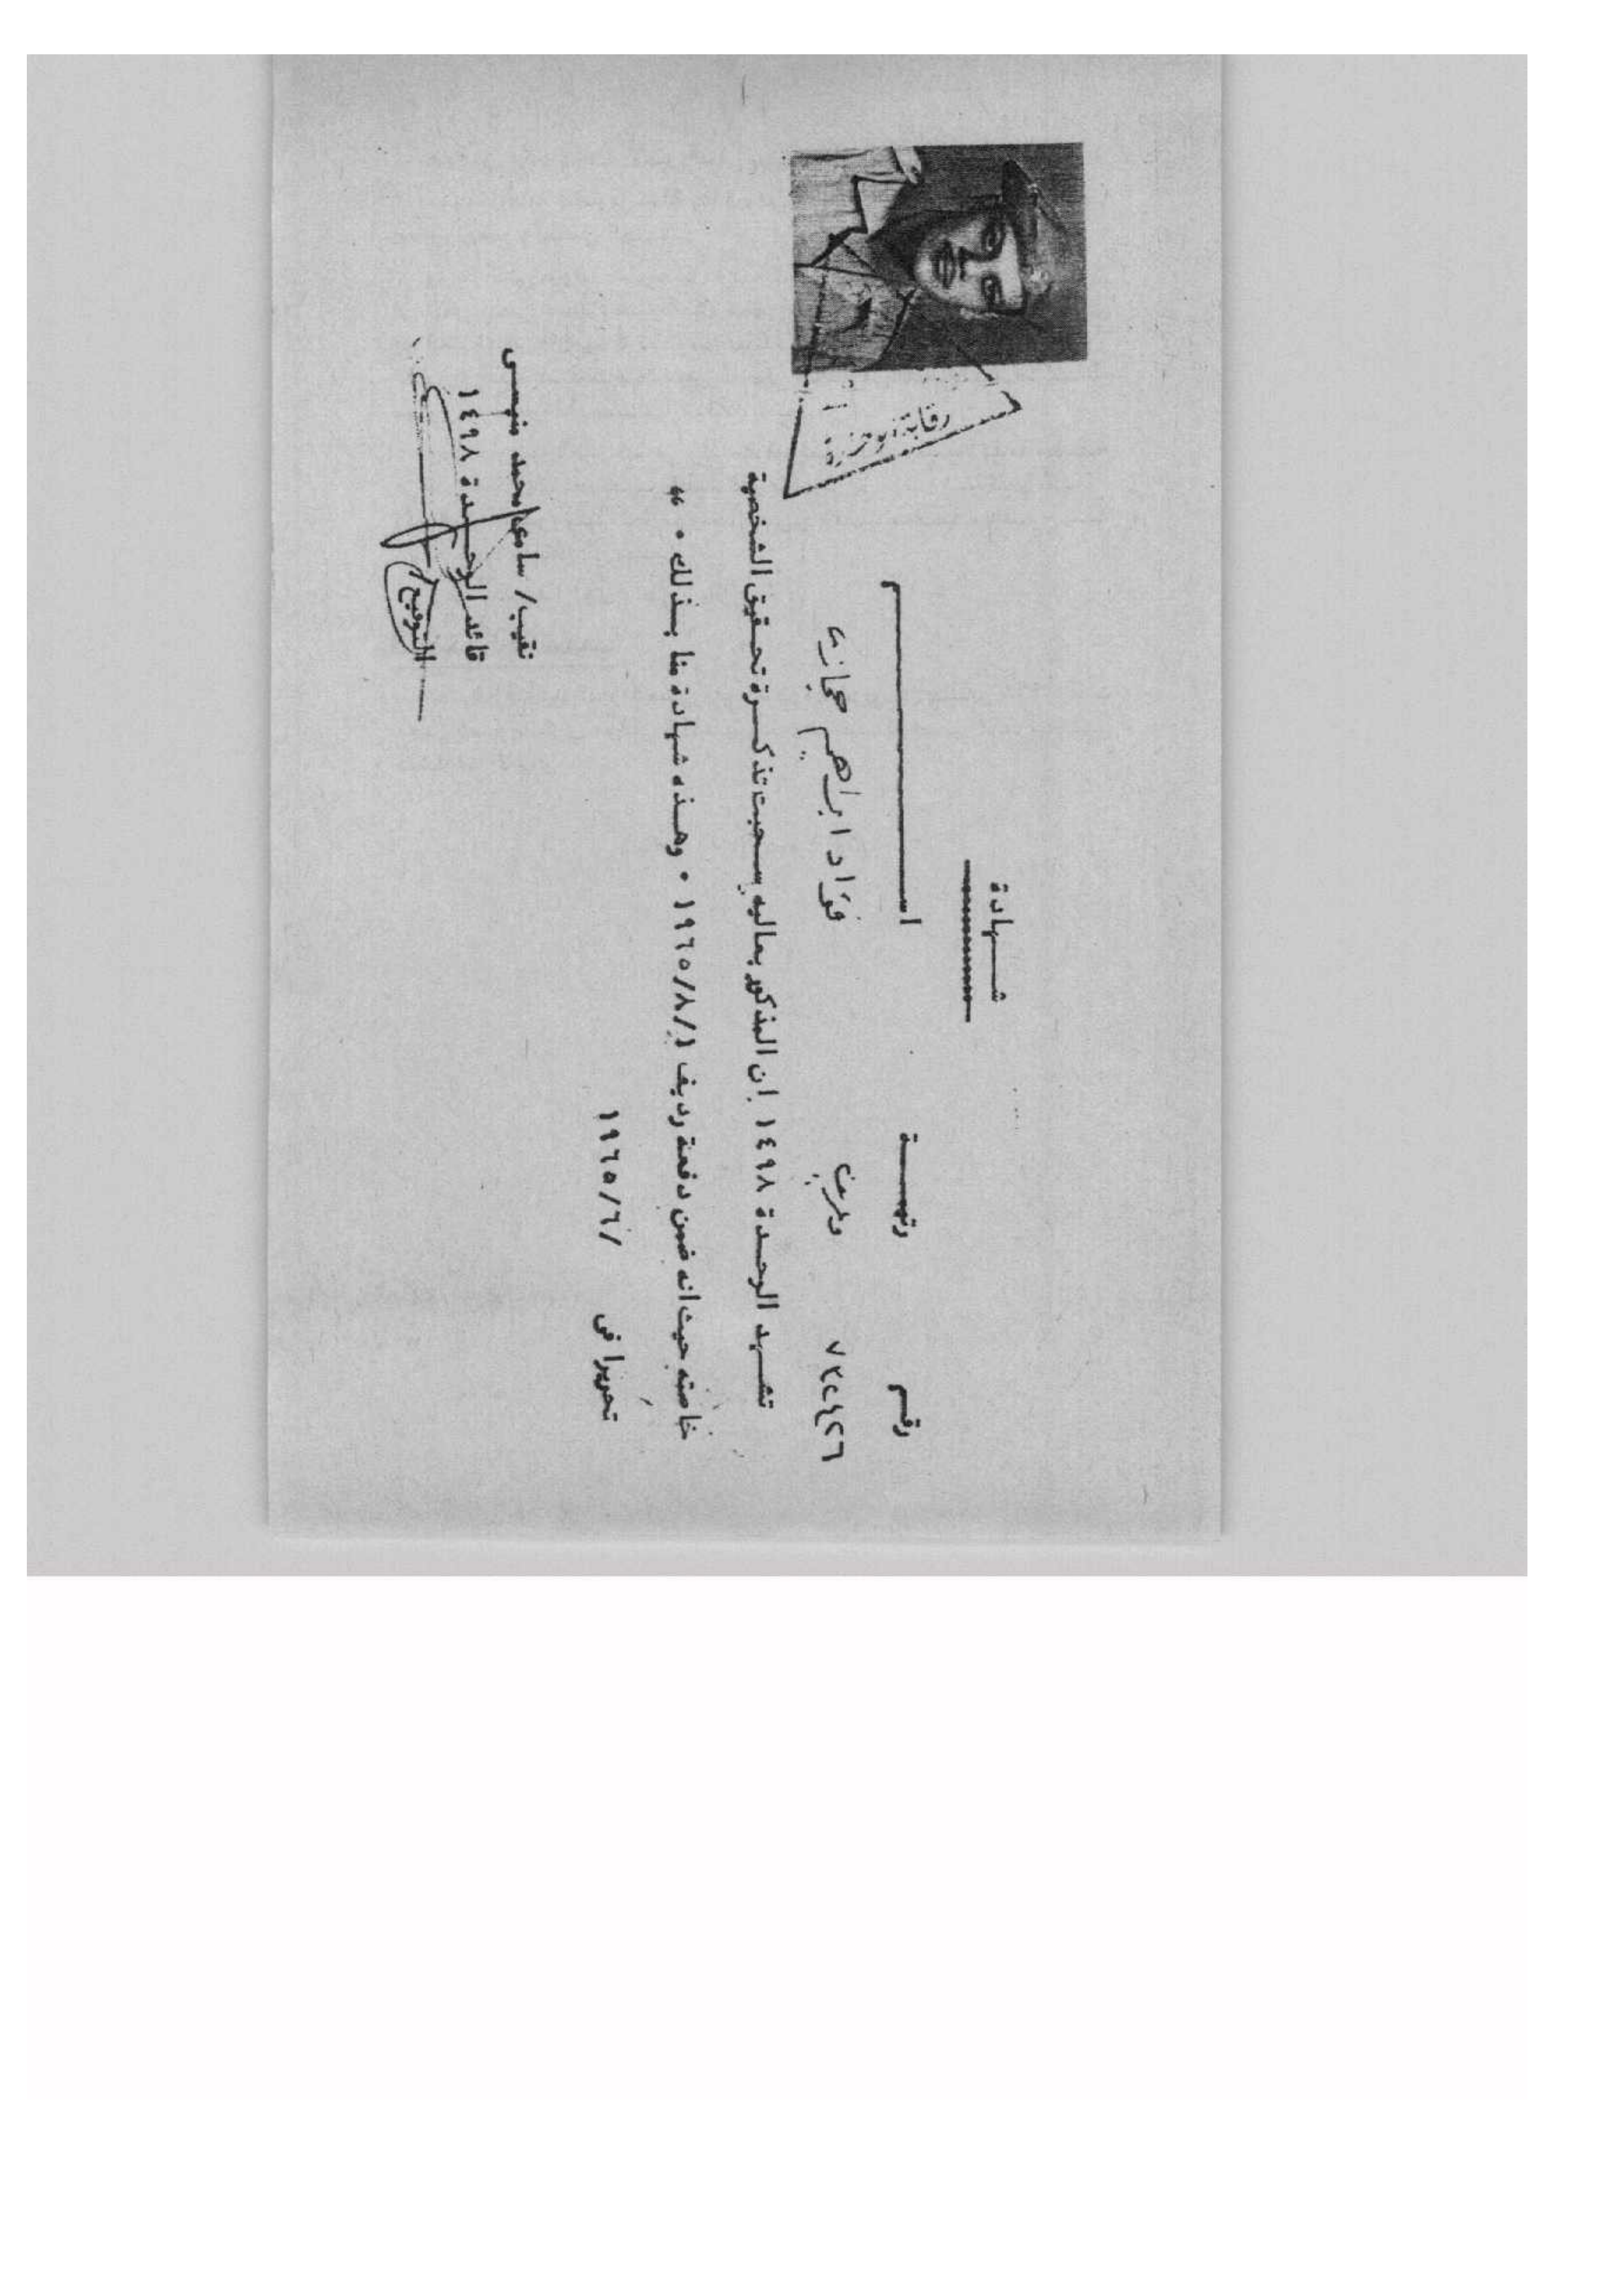 شهادة
رقم رتبة اسم
فؤاد ابراهيم حجازى
تشهد الوحدة ١٤٩٨ ان المذكور بعاليه سحبت تذكرة تحقيق الشخصية
خاصته حيث انه ضمن دفعة رديف ١/٨/١٩٦٥ ٠ وهذه شهادة منا بذلك ٠ ،،
تحريرا فى /٦/١٩٦٥
نقيب/ سامى محمد منيسى
قائد الوحدة ١٤٩٨
التوقيع
رقابة